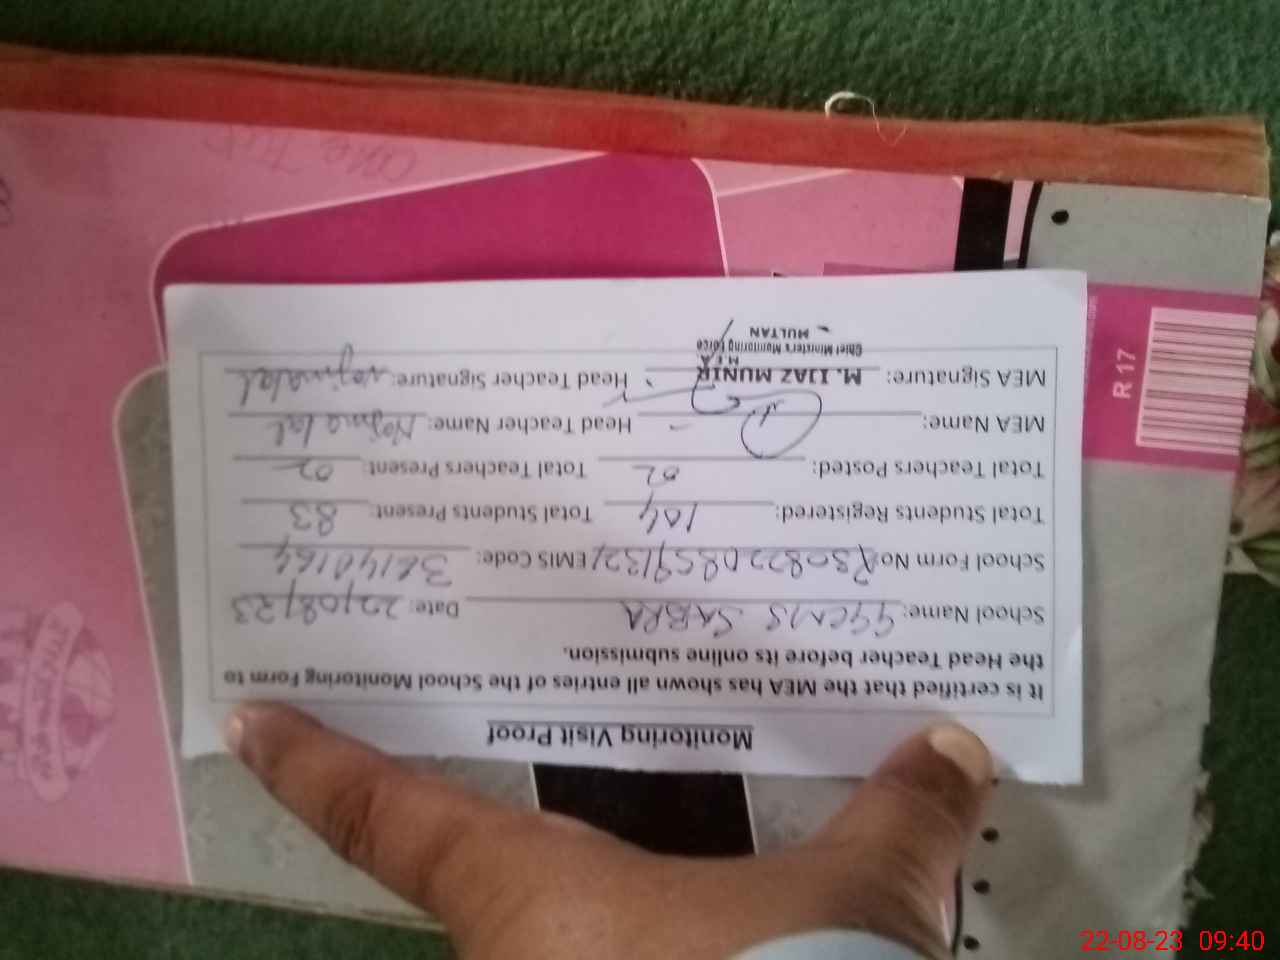 Monitoring Visit Proof
It is certified that the MEA has shown all entries of the School Monitoring Form to
the Head Teacher before its online submission.
School Name: GGCMS SABRA Date: 22/08/23
School Form No: EMIS Code: 36140164
Total Students Registered: 104 Total Students Present: 83
Total Teachers Posted: 02 Total Teachers Present: 02
MEA Name: Head Teacher Name: Najma lal
MEA Signature: Head Teacher Signature: Najma lal
M. IJAZ MUNIR
M.E.A
Chief Minister's Monitoring Force
MULTAN
R 17
22-08-23 09:40